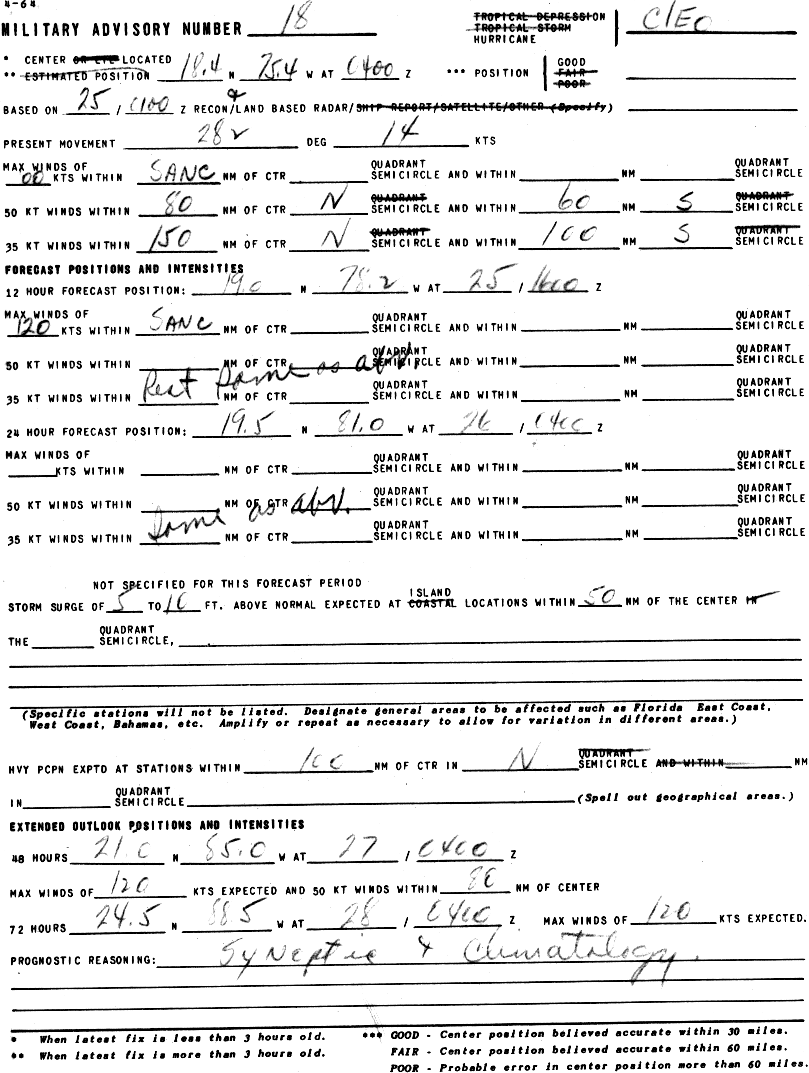 4-64
MILITARY ADVISORY NUMBER 18 TROPICAL DEPRESSION CLEO
TROPICAL STORM
HURRICANE
* CENTER OR EYE LOCATED
** ESTIMATED POSITION 18.4 N 75.4 W AT 0400 Z *** POSITION GOOD
FAIR
POOR
BASED ON 25 / 0100 Z RECON & /LAND BASED RADAR/SHIP REPORT/SATELLITE/OTHER (Specify)
PRESENT MOVEMENT 282 DEG 14 KTS
MAX WINDS OF QUADRANT QUADRANT
00 KTS WITHIN SANC NM OF CTR SEMICIRCLE AND WITHIN NM SEMICIRCLE
50 KT WINDS WITHIN 80 NM OF CTR N QUADRANT SEMICIRCLE AND WITHIN 60 NM S QUADRANT SEMICIRCLE
35 KT WINDS WITHIN 150 NM OF CTR N QUADRANT SEMICIRCLE AND WITHIN 100 NM S QUADRANT SEMICIRCLE
FORECAST POSITIONS AND INTENSITIES
12 HOUR FORECAST POSITION: 19.0 N 78.2 W AT 25 / 1600 Z
MAX WINDS OF QUADRANT QUADRANT
120 KTS WITHIN SANC NM OF CTR SEMICIRCLE AND WITHIN NM SEMICIRCLE
50 KT WINDS WITHIN NM OF CTR QUADRANT SEMICIRCLE AND WITHIN NM QUADRANT SEMICIRCLE
Rest Same as abv.
35 KT WINDS WITHIN NM OF CTR QUADRANT SEMICIRCLE AND WITHIN NM QUADRANT SEMICIRCLE
24 HOUR FORECAST POSITION: 19.5 N 81.0 W AT 26 / 0400 Z
MAX WINDS OF QUADRANT QUADRANT
KTS WITHIN NM OF CTR SEMICIRCLE AND WITHIN NM SEMICIRCLE
50 KT WINDS WITHIN NM OF CTR QUADRANT SEMICIRCLE AND WITHIN NM QUADRANT SEMICIRCLE
Same as abv.
35 KT WINDS WITHIN NM OF CTR QUADRANT SEMICIRCLE AND WITHIN NM QUADRANT SEMICIRCLE
NOT SPECIFIED FOR THIS FORECAST PERIOD
STORM SURGE OF 5 TO 10 FT. ABOVE NORMAL EXPECTED AT ISLAND COASTAL LOCATIONS WITHIN 50 NM OF THE CENTER IN
THE QUADRANT SEMICIRCLE,
(Specific stations will not be listed. Designate general areas to be affected such as Florida East Coast,
West Coast, Bahamas, etc. Amplify or repeat as necessary to allow for variation in different areas.)
HVY PCPN EXPTD AT STATIONS WITHIN 100 NM OF CTR IN N QUADRANT SEMICIRCLE AND WITHIN NM
IN QUADRANT SEMICIRCLE (Spell out geographical areas.)
EXTENDED OUTLOOK POSITIONS AND INTENSITIES
48 HOURS 21.0 N 85.0 W AT 27 / 0400 Z
MAX WINDS OF 120 KTS EXPECTED AND 50 KT WINDS WITHIN 80 NM OF CENTER
72 HOURS 24.5 N 88.5 W AT 28 / 0400 Z MAX WINDS OF 120 KTS EXPECTED.
PROGNOSTIC REASONING: Syneptic & Climatology.
* When latest fix is less than 3 hours old. *** GOOD - Center position believed accurate within 30 miles.
** When latest fix is more than 3 hours old. FAIR - Center position believed accurate within 60 miles.
POOR - Probable error in center position more than 60 miles.